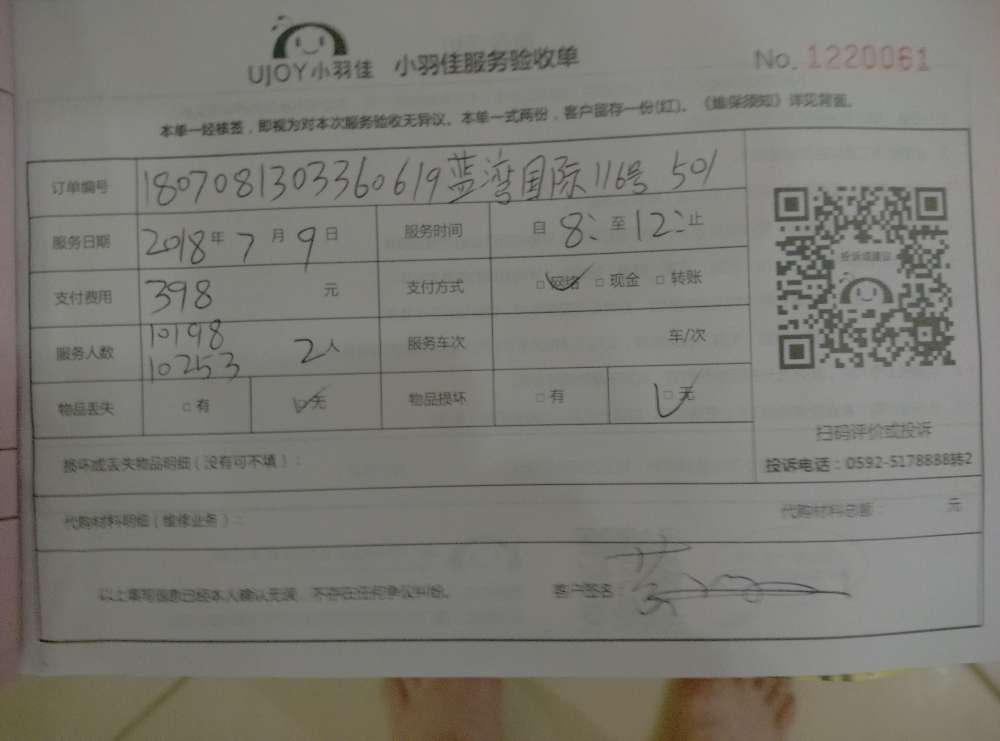 UJOY小羽佳 小羽佳服务验收单 No. 1220061
本单一经核签，即视为对本次服务验收无异议。本单一式两份，客户留存一份(红)。《维保须知》详见背面。
订单编号 1807081303360619蓝湾国际116号 501
服务日期 2018年7月9日 服务时间 自 8: 至 12: 止
支付费用 398 元 支付方式 □网络 □现金 □转账
服务人数 10198 10253 2人 服务车次 车/次
物品丢失 □有 □无 物品损坏 □有 □无
投诉或建议
扫码评价或投诉
投诉电话：0592-5178888转2
损坏或丢失物品明细（没有可不填）：
代购材料明细（维修业务）： 代购材料总额： 元
以上填写信息已经本人确认无误，不存在任何争议纠纷。 客户签名：